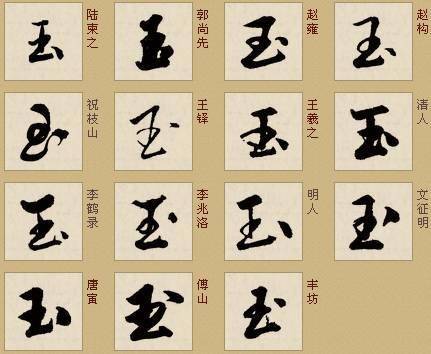 玉 陆柬之 玉 郭尚先 玉 赵雍 玉 赵构
玉 祝枝山 玉 王铎 玉 王羲之 玉 清人
玉 李鹤录 玉 李兆洛 玉 明人 玉 文征明
玉 唐寅 玉 傅山 玉 丰坊